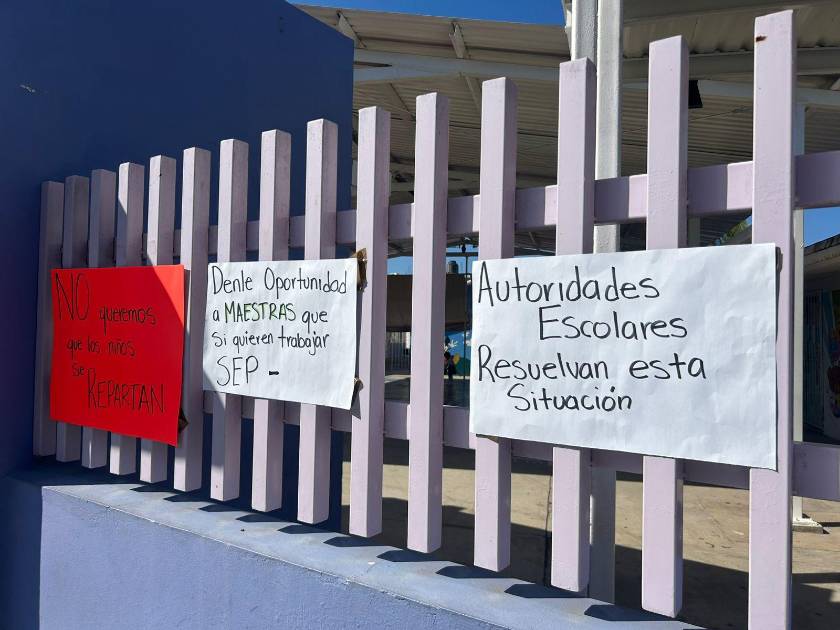 NO queremos
que los niños
se
REPARTAN
Denle Oportunidad
a MAESTRAS que
si quieren trabajar
SEP -
Autoridades
Escolares
Resuelvan esta
Situación